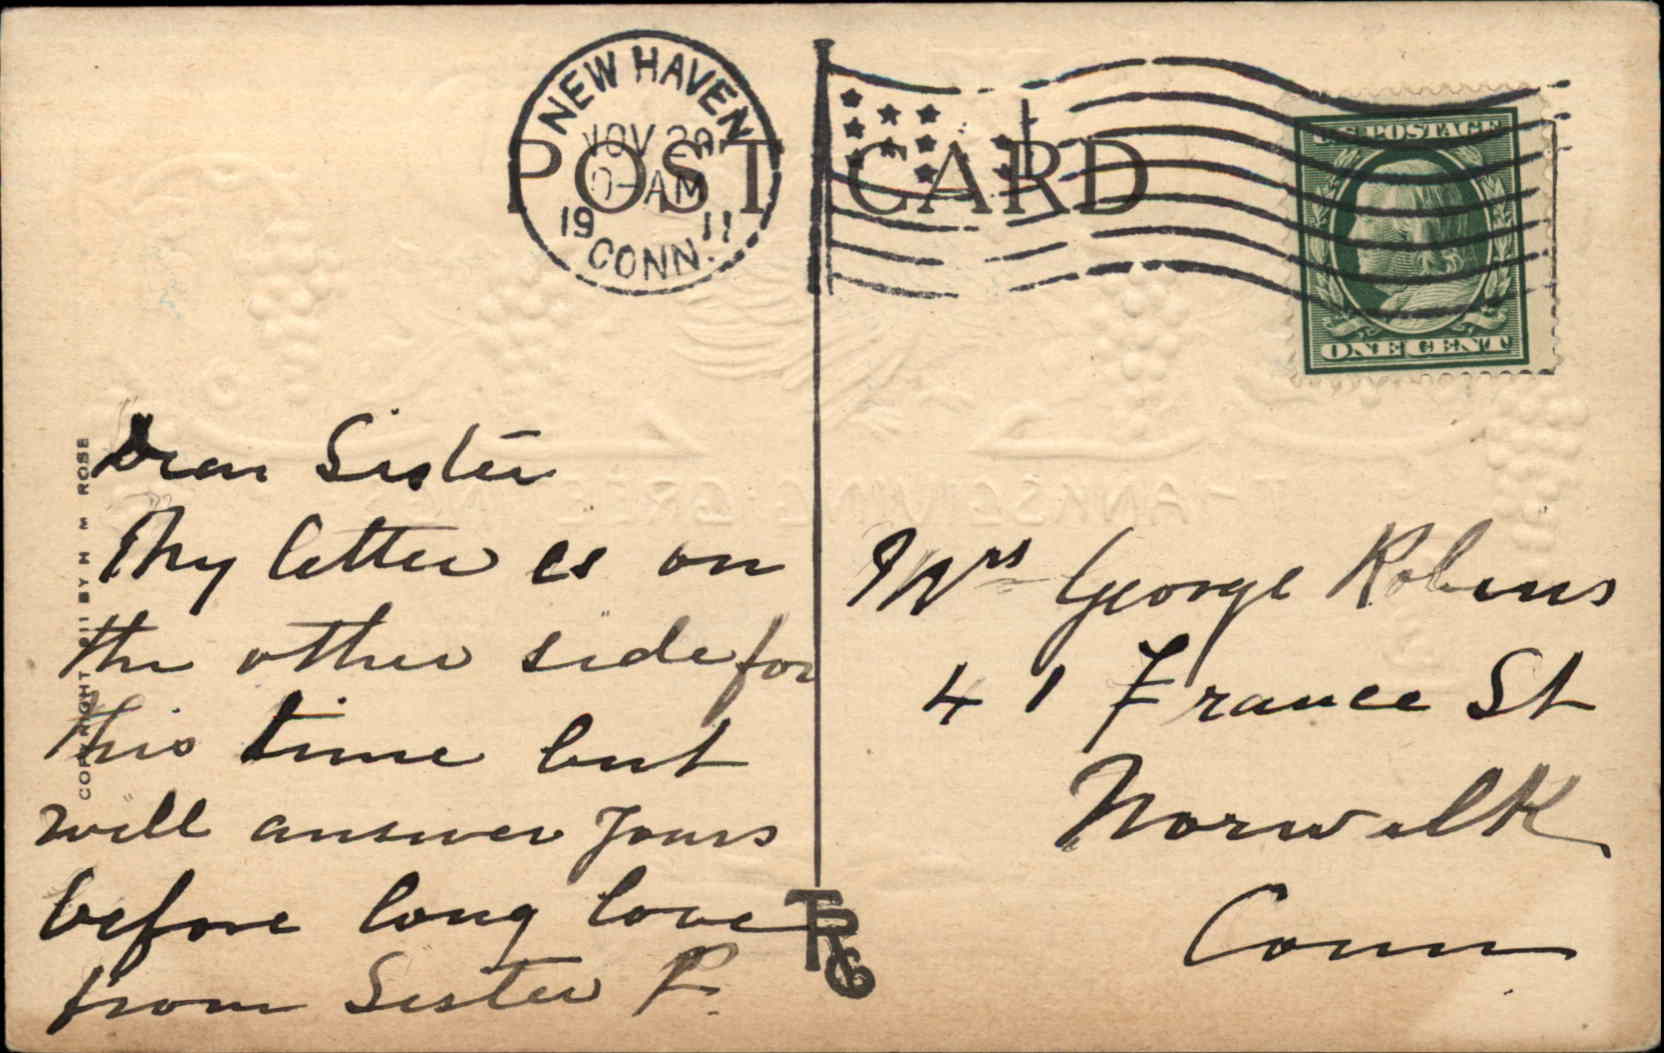 NEW HAVEN
NOV 29
-AM
19 11
CONN.
POST CARD
U.S. POSTAGE
ONE CENT
COPYRIGHT 1911 BY H M ROSE
Dear Sister
My letter is on
the other side for
this time but
will answer yours
before long love
from Sister P.
Mrs George Robins
41 France St
Norwalk
Conn
THANKSGIVING GREETINGS
TRG